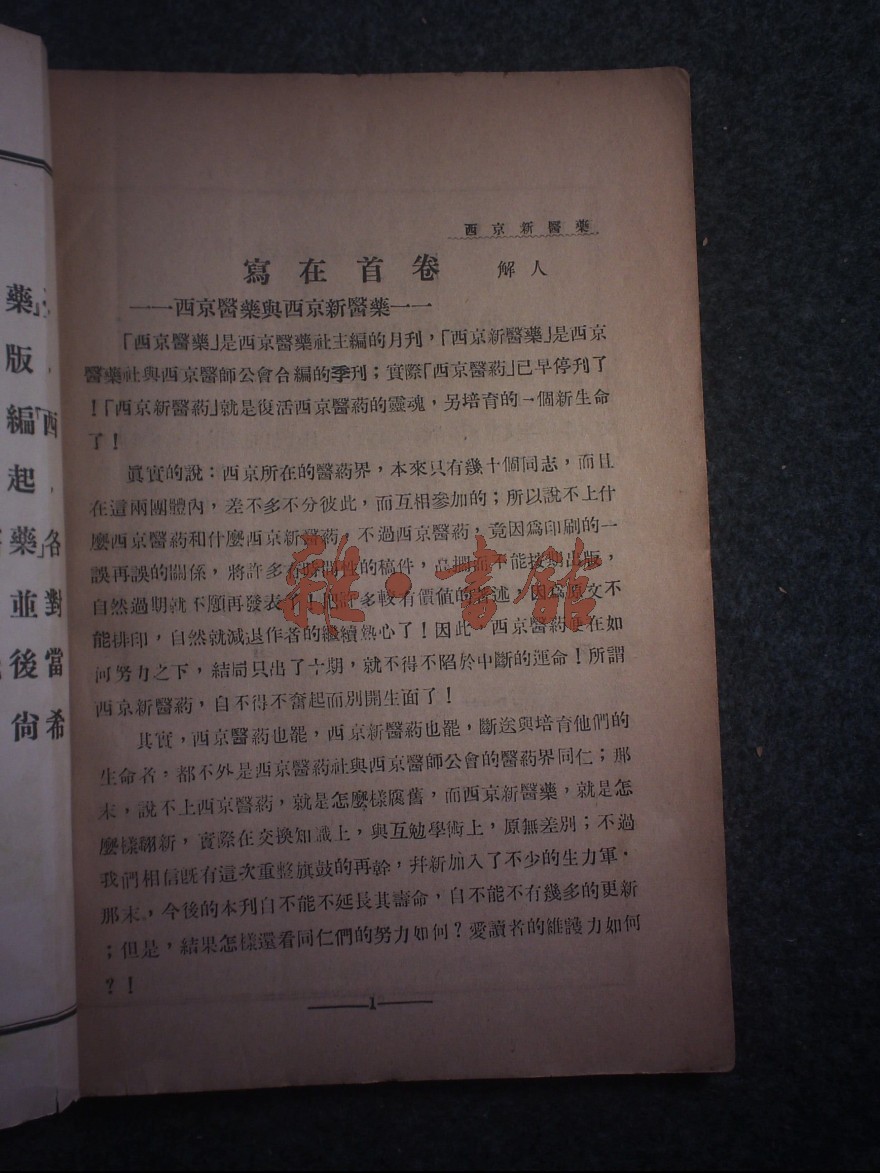 西京新醫藥
寫在首卷 解人
——西京醫藥與西京新醫藥——
「西京醫藥」是西京醫藥社主編的月刊，「西京新醫藥」是西京
醫藥社與西京醫師公會合編的季刊；實際「西京醫葯」已早停刊了
！「西京新醫葯」就是復活西京醫葯的靈魂，另培育的一個新生命
了！
眞實的說：西京所在的醫葯界，本來只有幾十個同志，而且
在這兩團體內，差不多不分彼此，而互相參加的；所以說不上什
麼西京醫葯和什麼西京新醫葯，不過西京醫葯，竟因爲印刷的一
誤再誤的關係，將許多有時間性的稿件，擱而不能按期出版，
自然過期就不願再發表了！把許多較有價値的著述，因爲原文不
能排印，自然就減退作者的繼續熱心了！因此，西京醫葯便在如
何努力之下，結局只出了十期，就不得不陷於中斷的運命！所謂
西京新醫葯，自不得不奮起而別開生面了！
其實，西京醫葯也罷，西京新醫葯也罷，斷送與培育他們的
生命者，都不外是西京醫葯社與西京醫師公會的醫葯界同仁；那
末，說不上西京醫葯，就是怎麼樣腐舊，而西京新醫藥，就是怎
麼樣嶄新，實際在交換知識上，與互勉學術上，原無差別；不過
我們相信既有這次重整旗鼓的再幹，幷新加入了不少的生力軍，
那末，今後的本刊自不能不延長其壽命，自不能不有幾多的更新
；但是，結果怎樣還看同仁們的努力如何？愛讀者的維護力如何
？！
——1——
雜·書館
藥」
版
編「西
起
藥」各
並對
後當
尙希